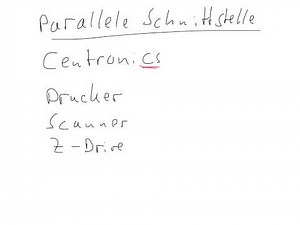 Parallele Schnittstelle
Centronics
Drucker
Scanner
Z-Drive